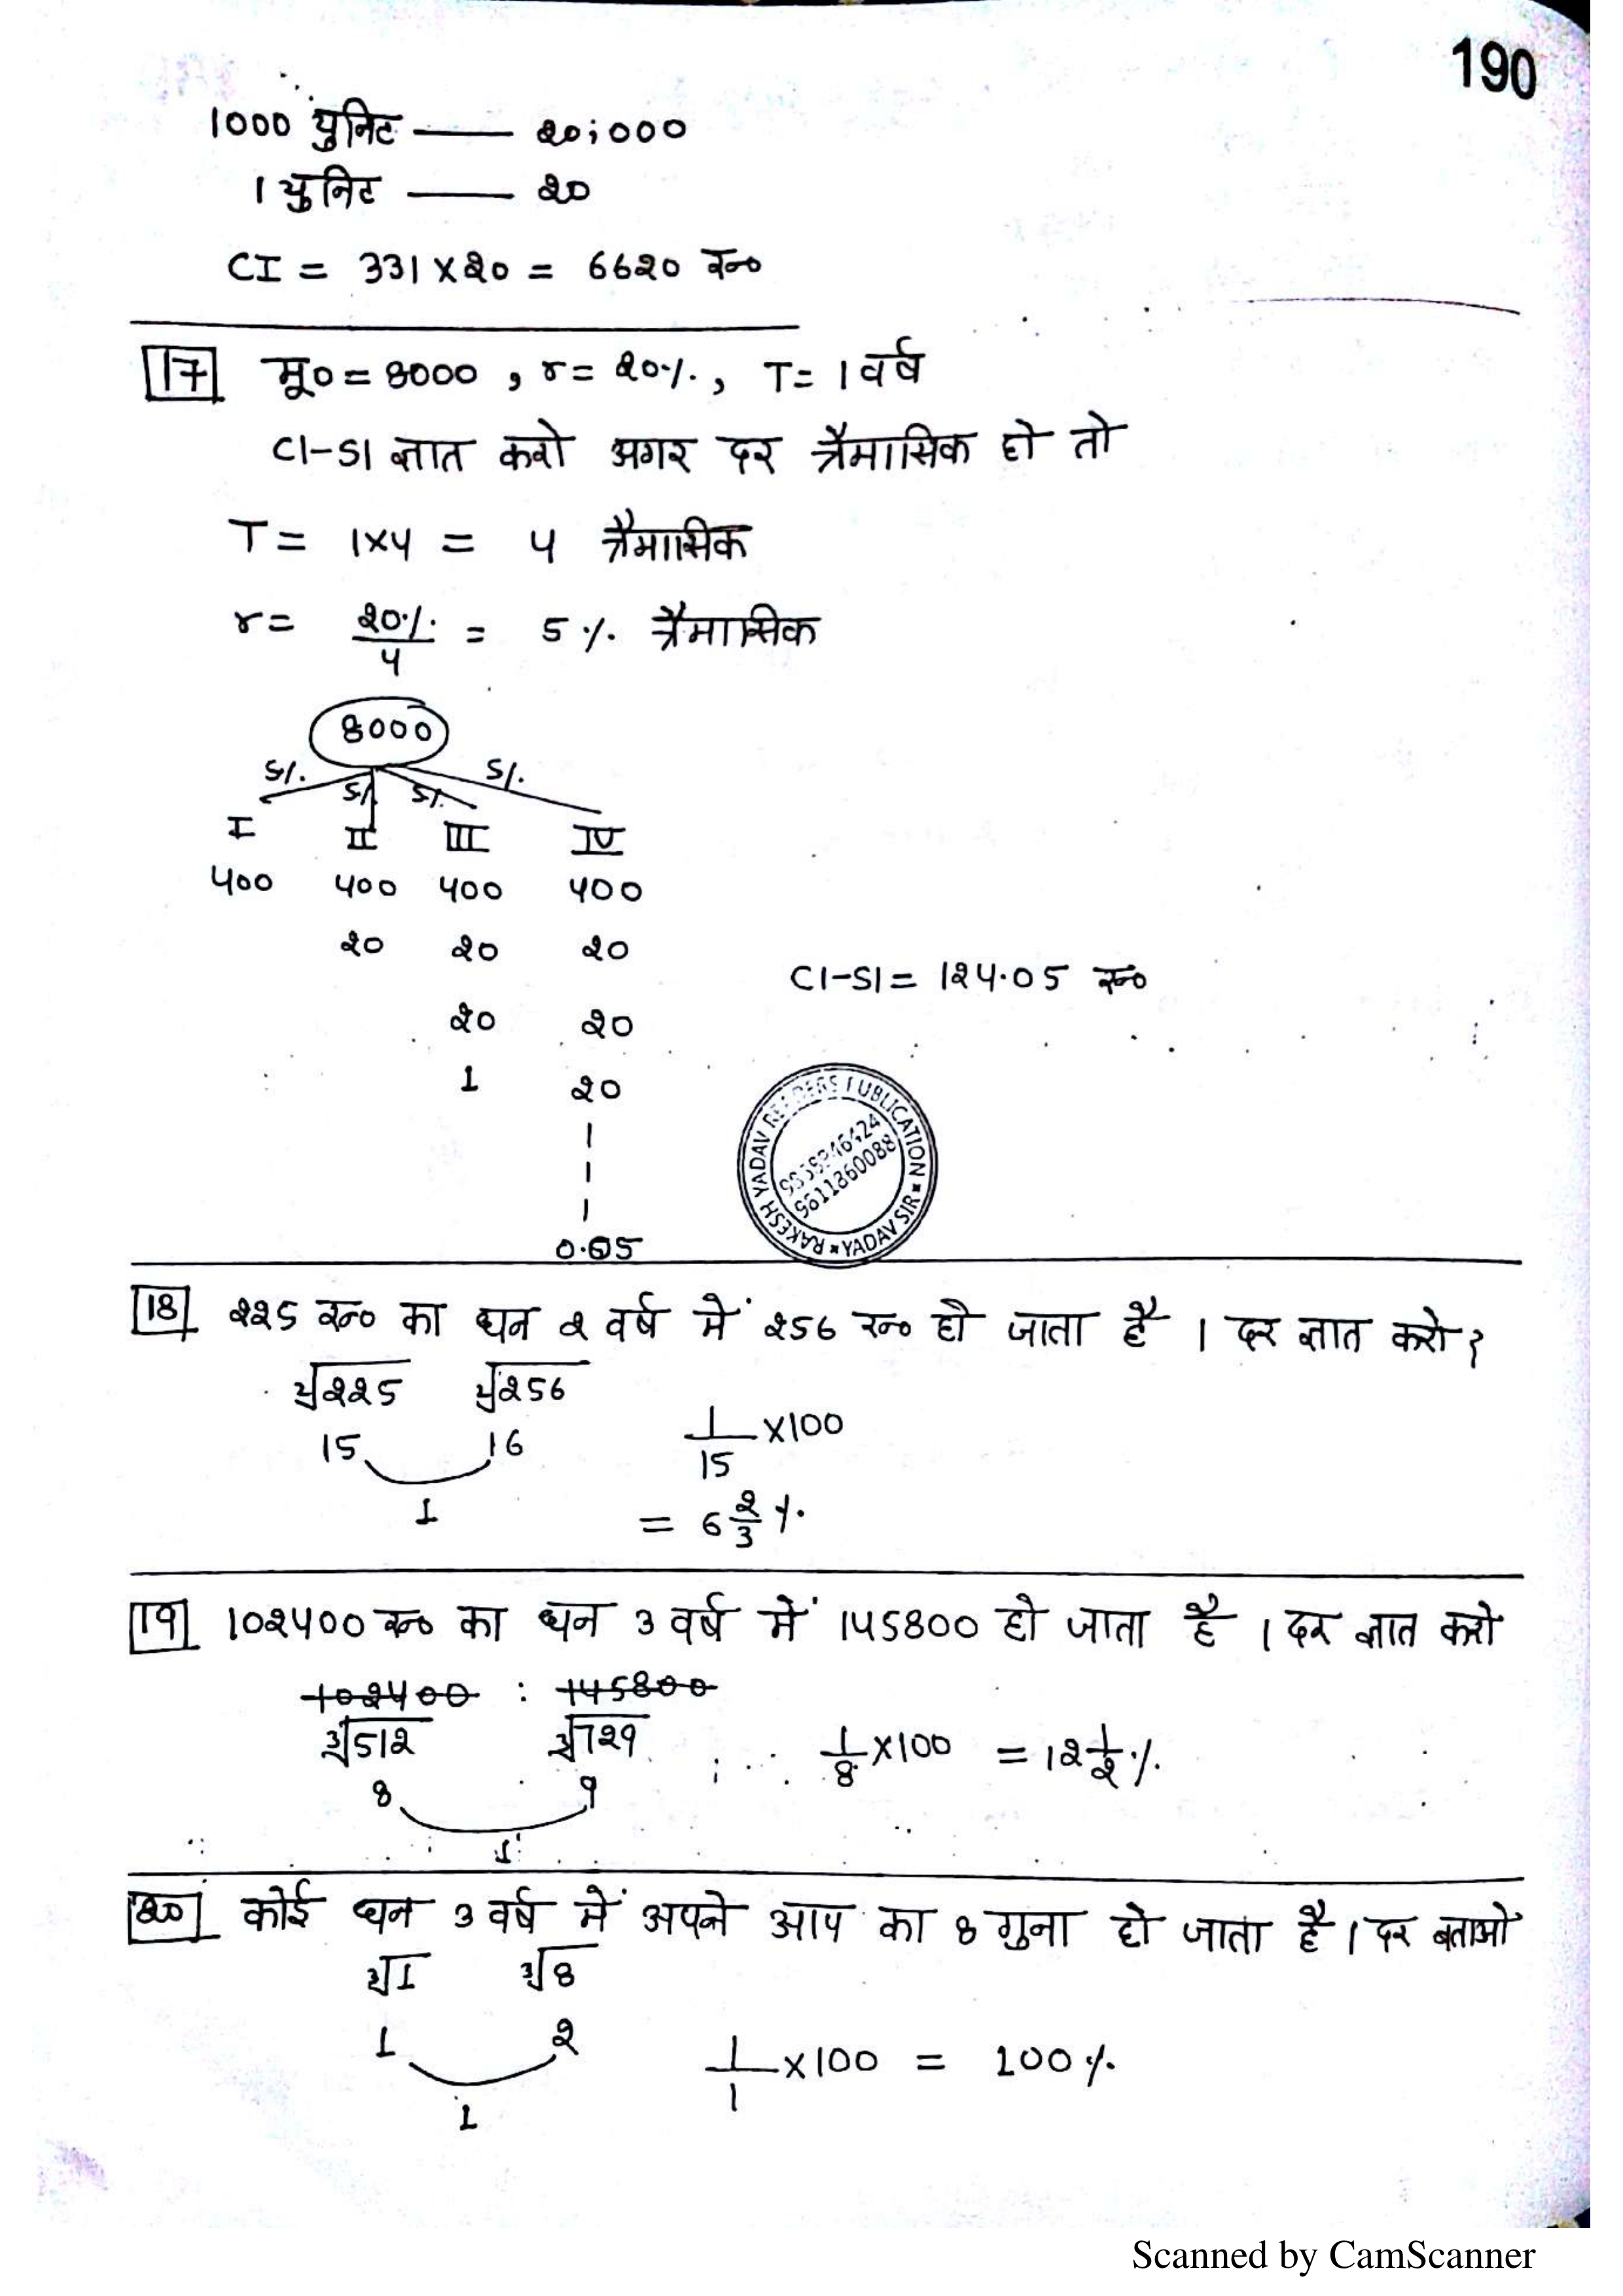 190
1000 युनिट —— 20,000
1 युनिट —— 20
CI = 331 × 20 = 6620 रू०
17 मू० = 8000 , r = 20% , T = 1 वर्ष
CI-SI ज्ञात करो अगर दर त्रैमासिक हो तो
T = 1×4 = 4 त्रैमासिक
r = 20%/4 = 5% त्रैमासिक
8000
5% 5% 5% 5%
I II III IV
400 400 400 400
20 20 20
CI-SI = 124.05 रू०
20 20
1 20
1
1
1
0.05
RAKESH YADAV READERS PUBLICATION * YADAV SIR *
9811860088
18 225 रू० का धन 2 वर्ष में 256 रू० हो जाता है । दर ज्ञात करो ?
²√225 ²√256
15 16 1/15 ×100
1 = 6 2/3 %
19 102400 रू० का धन 3 वर्ष में 145800 हो जाता है । दर ज्ञात करो
102400 : 145800
³√512 ³√729 1/8 ×100 = 12 1/2 %
8 9
1
20 कोई धन 3 वर्ष में अपने आप का 8 गुना हो जाता है । दर बताओ
³√1 ³√8
1 2 1/1 ×100 = 100 %
1
Scanned by CamScanner